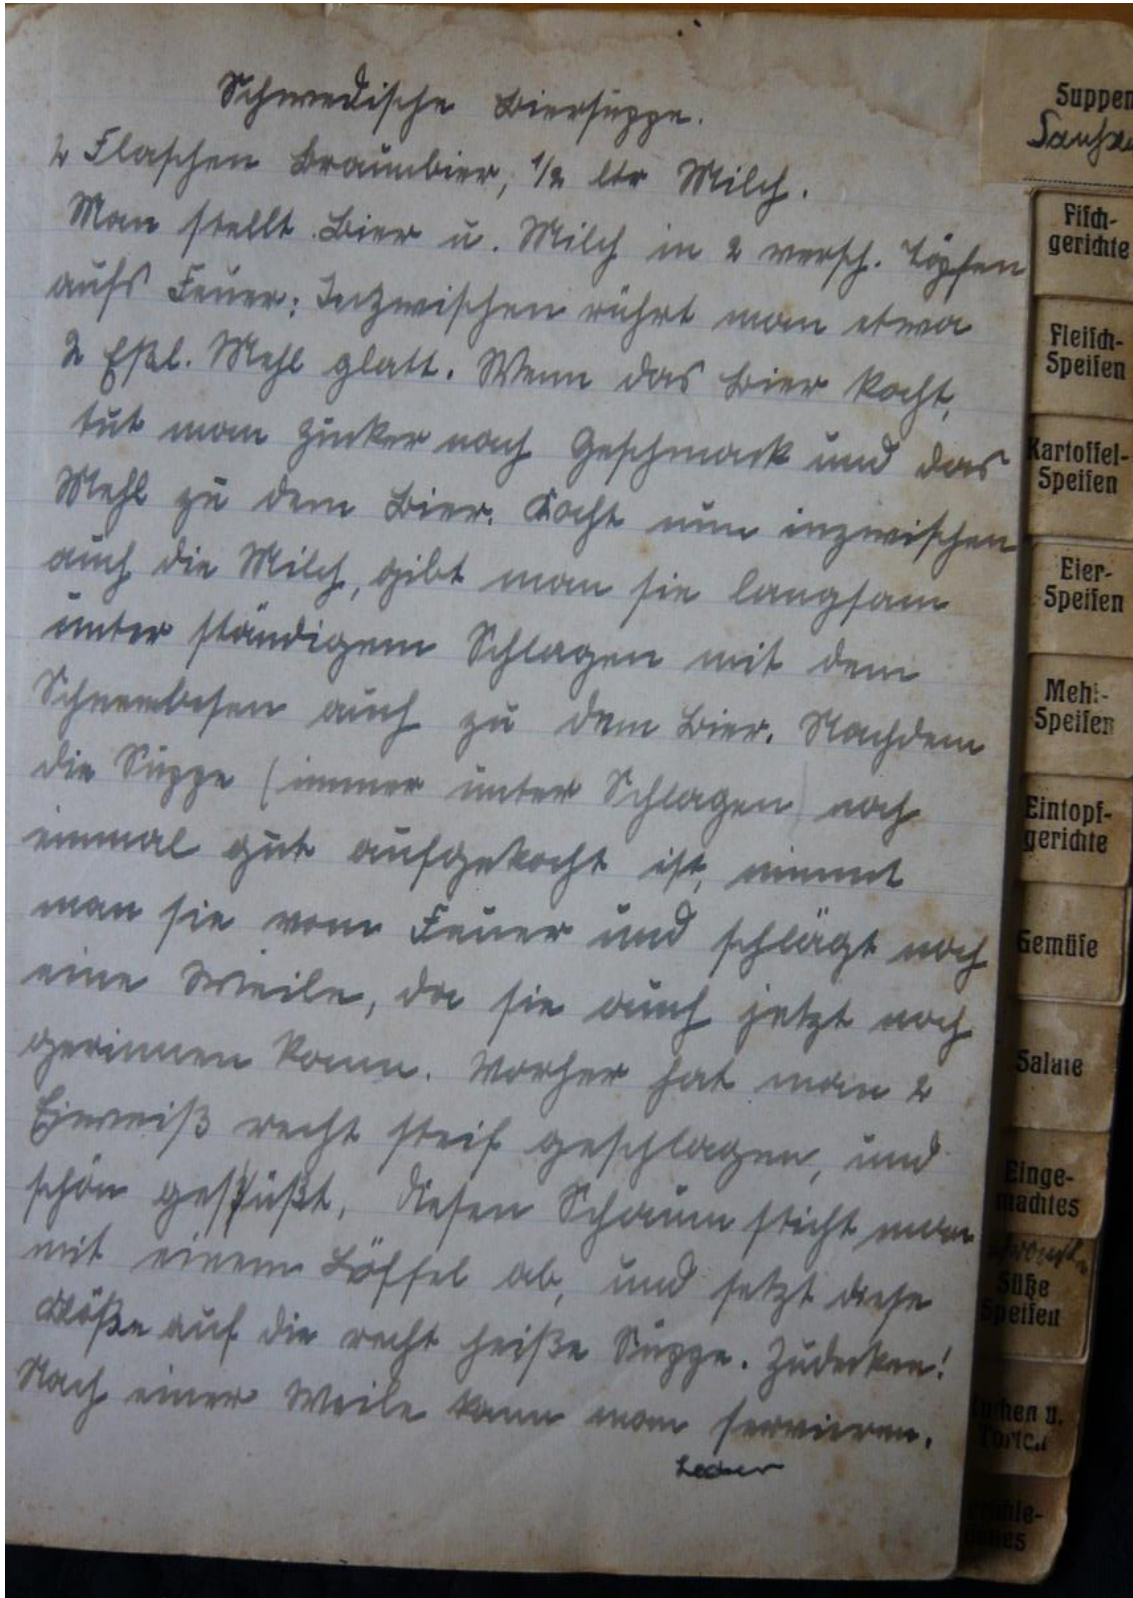 Schwedische Biersuppe.
2 Flaschen Braunbier, 1/2 ltr Milch.
Man stellt Bier u. Milch in 2 versch. Töpfen
aufs Feuer; Inzwischen rührt man etwa
2 Eßl. Mehl glatt. Wenn das Bier kocht,
tut man Zucker nach Geschmack und das
Mehl zu dem Bier. Kocht nun inzwischen
auch die Milch, gibt man sie langsam
unter ständigem Schlagen mit dem
Schneebesen auch zu dem Bier. Nachdem
die Suppe (immer unter Schlagen) noch
einmal gut aufgekocht ist, nimmt
man sie vom Feuer und schlägt noch
eine Weile, da sie auch jetzt noch
gerinnen kann. Vorher hat man 2
Eiweiß recht steif geschlagen, und
schön gesüßt. Diesen Schaum sticht man
mit einem Löffel ab, und setzt diese
Klöße auf die recht heiße Suppe. Zudecken!
Nach einer Weile kann man servieren.
Lecker
Suppen
Fiſch-
gerichte
Fleiſch-
Speiſen
Kartoffel-
Speiſen
Eier-
Speiſen
Mehl-
Speiſen
Eintopf-
gerichte
Gemüſe
Salate
Einge-
machtes
Süße
Speiſen
Kuchen u.
Torten